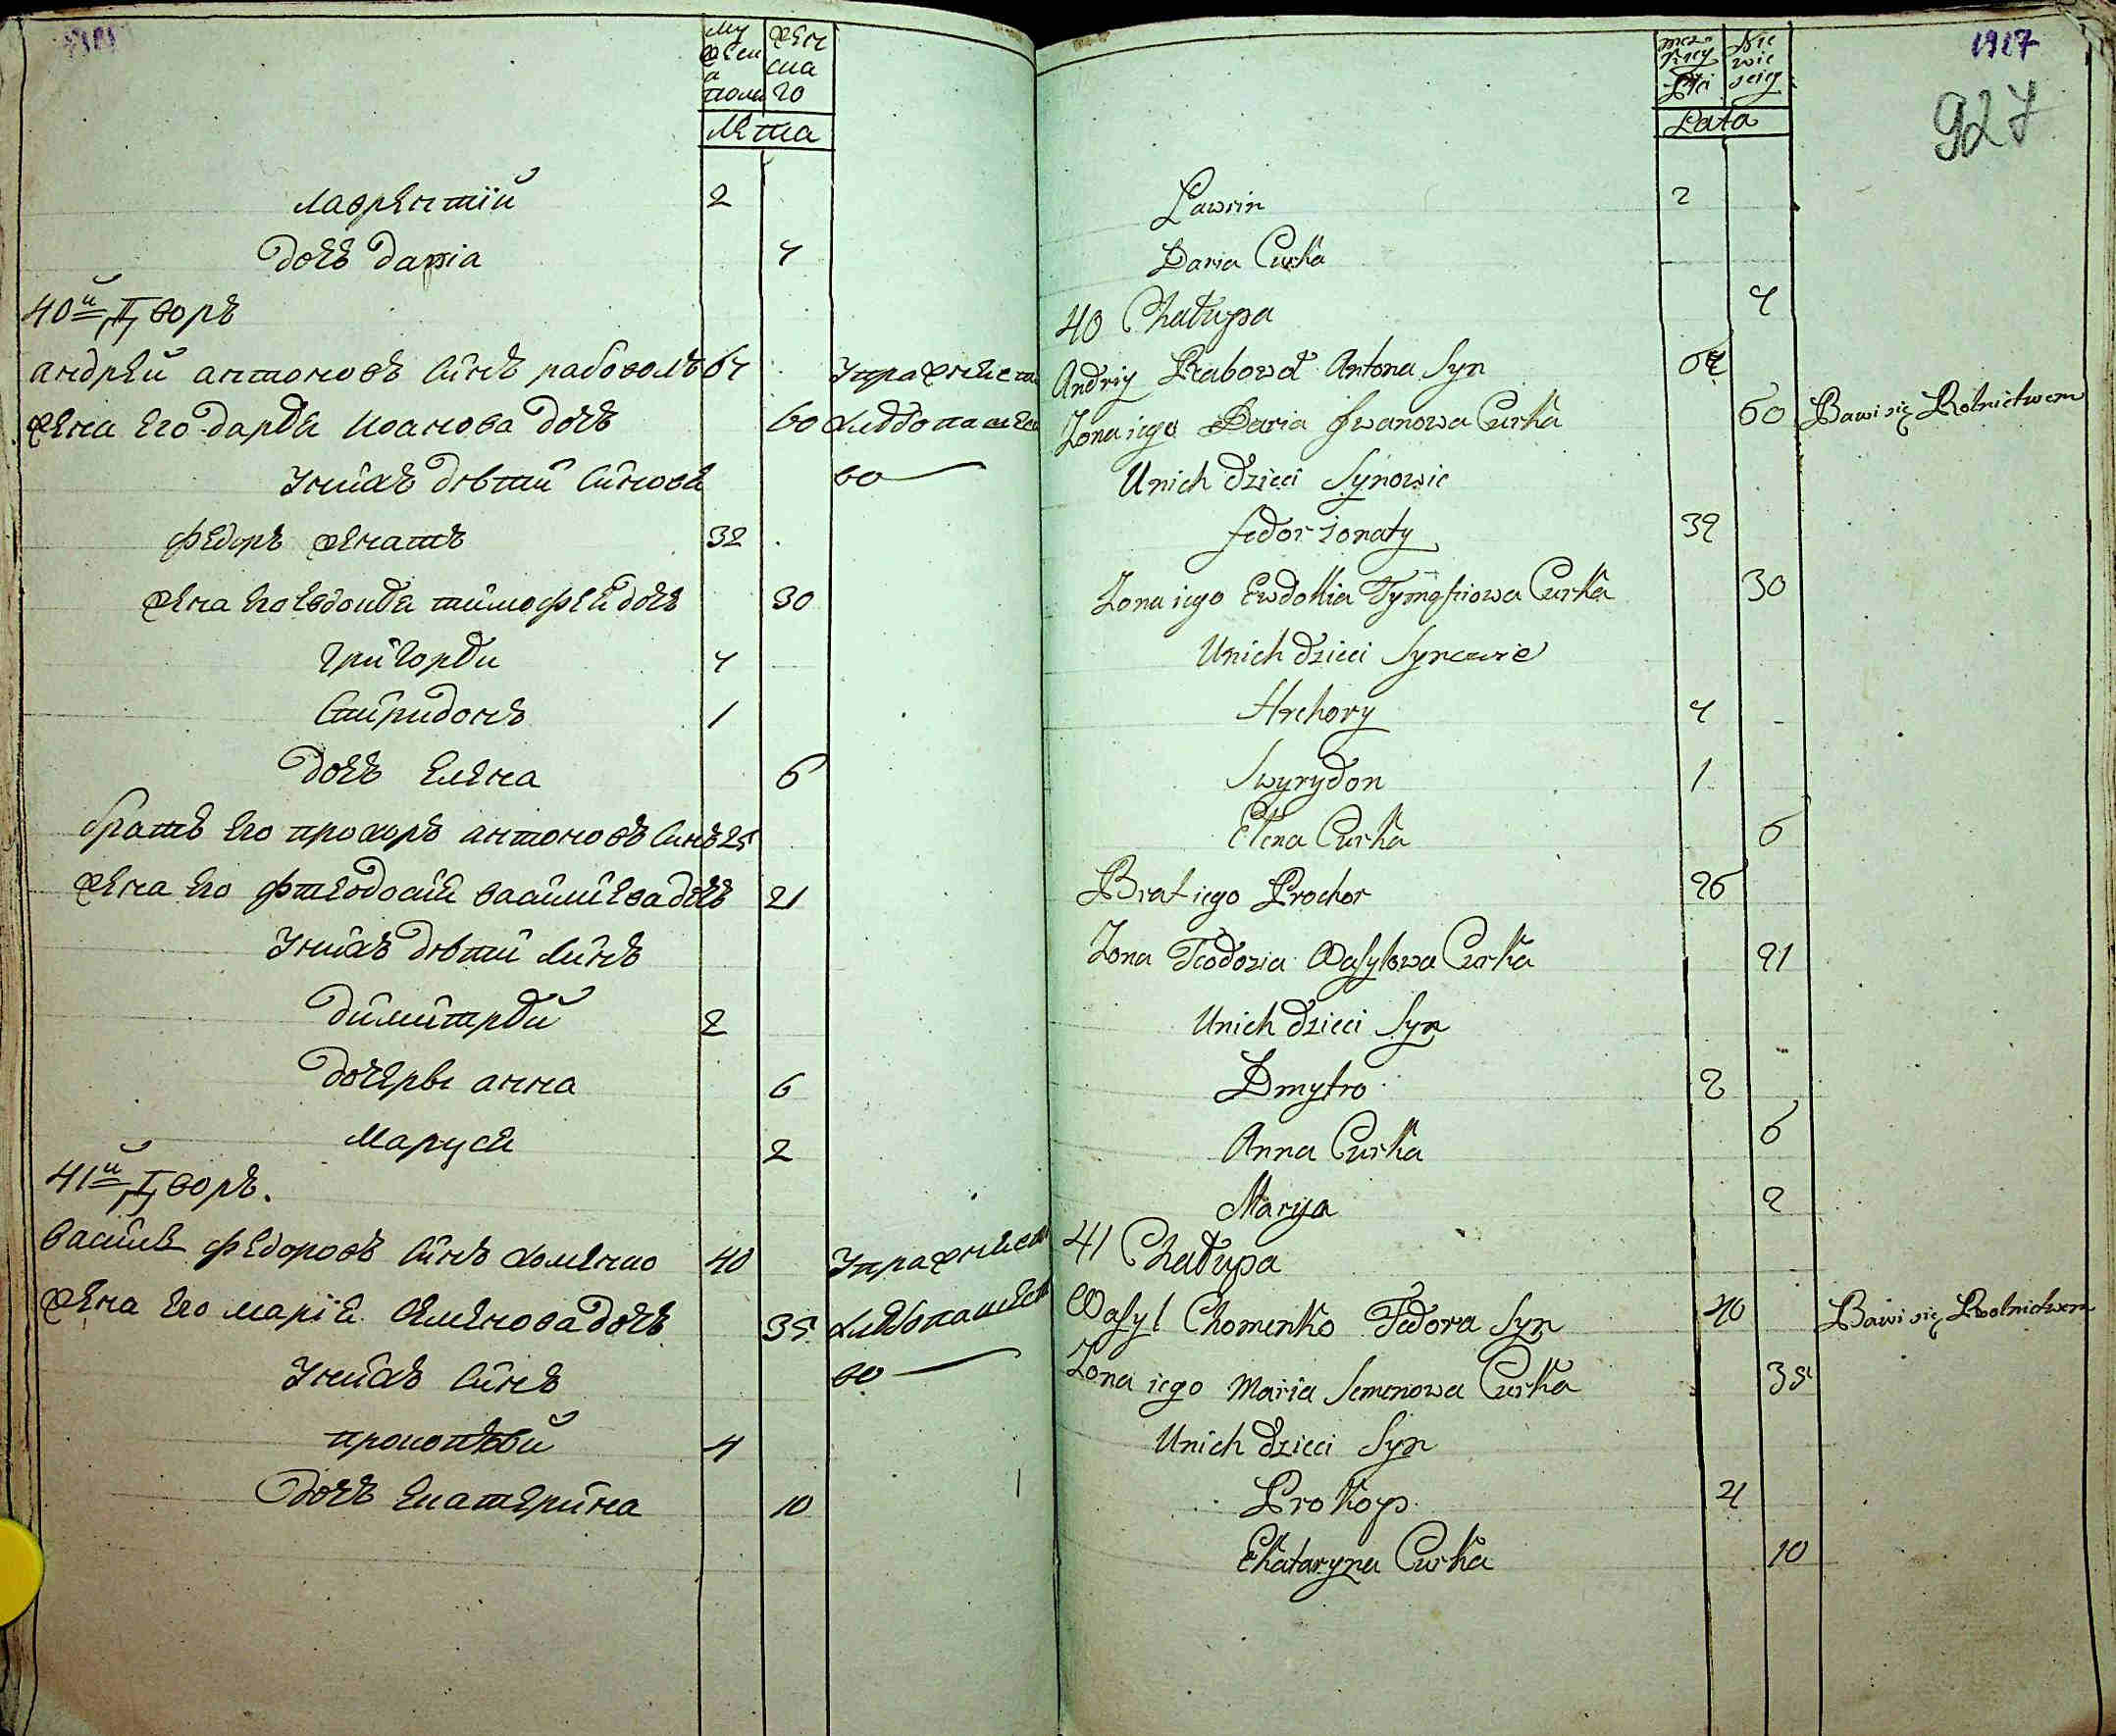 му жеска полу
женска го
Лѣта
Лаврентій 2
дочъ Дарїа 4
40й Дворъ
Андрей Антоновъ синъ рабоволъ 64 Упражняет
жена его Дарія Иоанова дочъ 60 хлѣбопашес
У нихъ дѣти синовя во
Федоръ женатъ 32
жена его Евдокія тимофей дочъ 30
Григорій 4
Спиридонъ 1
дочъ Елена 6
братъ его прохоръ антоновъ синъ 25
жена его Фтеодосія василіева дочъ 21
У нихъ дѣти синъ
Димитрій 2
дочери анна 6
Маруся 2
41й Дворъ.
Василь Федоровъ синъ хоменко 40 Упражняет
жена его марія Семенова дочъ 35 хлѣбопашест
У нихъ синъ во
прокопѣй 4
дочъ Екатерина 10
1917
927
męz kiey Płci
Nie wie sciey
Lata
Lawrin 2
Daria Curka 4
40 Chałupa
Andriy Rabowoł Antona Syn 64
Zona iego Daria Iwanowa Curka 60 Bawi się Rolnictwem
Unich dzieci Synowie
Fedor żonaty 32
Zona iego Ewdokia Tymofiiowa Curka 30
Unich dzieci Synowie
Hrehory 4
Swyrydon 1
Elena Curka 6
Brat iego Prochor 26
Zona Teodozia Wasylowa Curka 21
Unich dzieci Syn
Dmytro 2
Anna Curka 6
Marya 2
41 Chałupa
Wasyl Chomenko Fedora Syn 40 Bawi się Rolnictwem
Zona iego Maria Semenowa Curka 35
Unich dzieci Syn
Prokop 4
Ekataryna Curka 10